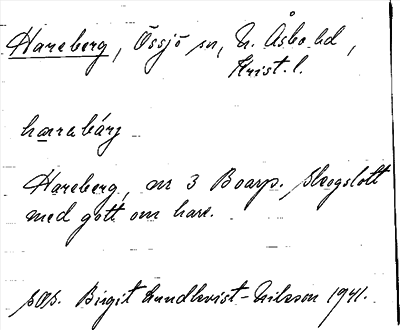 Hareberg, Össjö sn, N. Åsbo hd,
Krist. l.
harabärj
Hareberg, nr 3 Boarp. Skogslott
med gott om hare.
Birgit Lundkvist-Nilsson 1941.